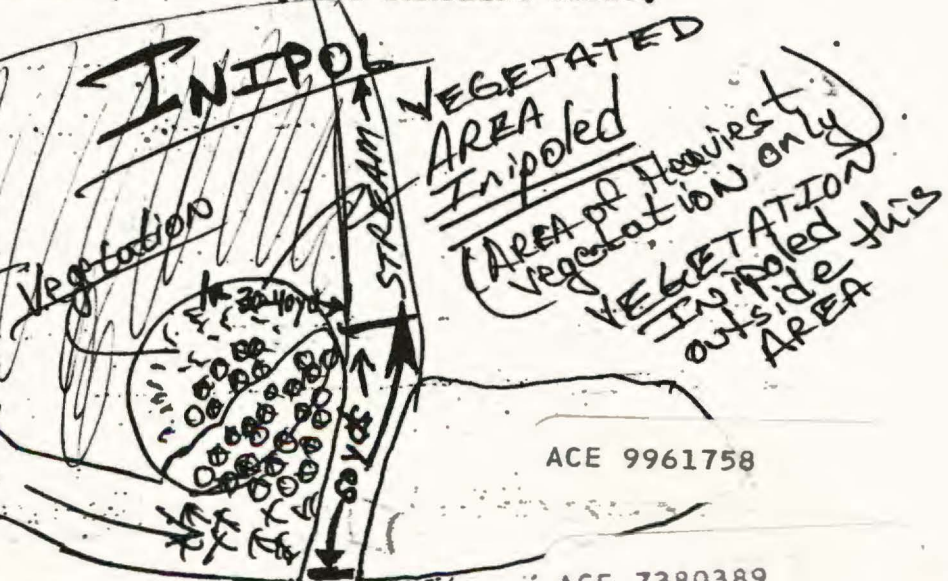 INIPOL
VEGETATED
AREA
Inipoled
(AREA of Heaviest
vegetation only)
VEGETATION
Inipoled
outside this
AREA
STREAM
Vegetation
30-40 yds
60 yds
ACE 9961758
ACE 7380389